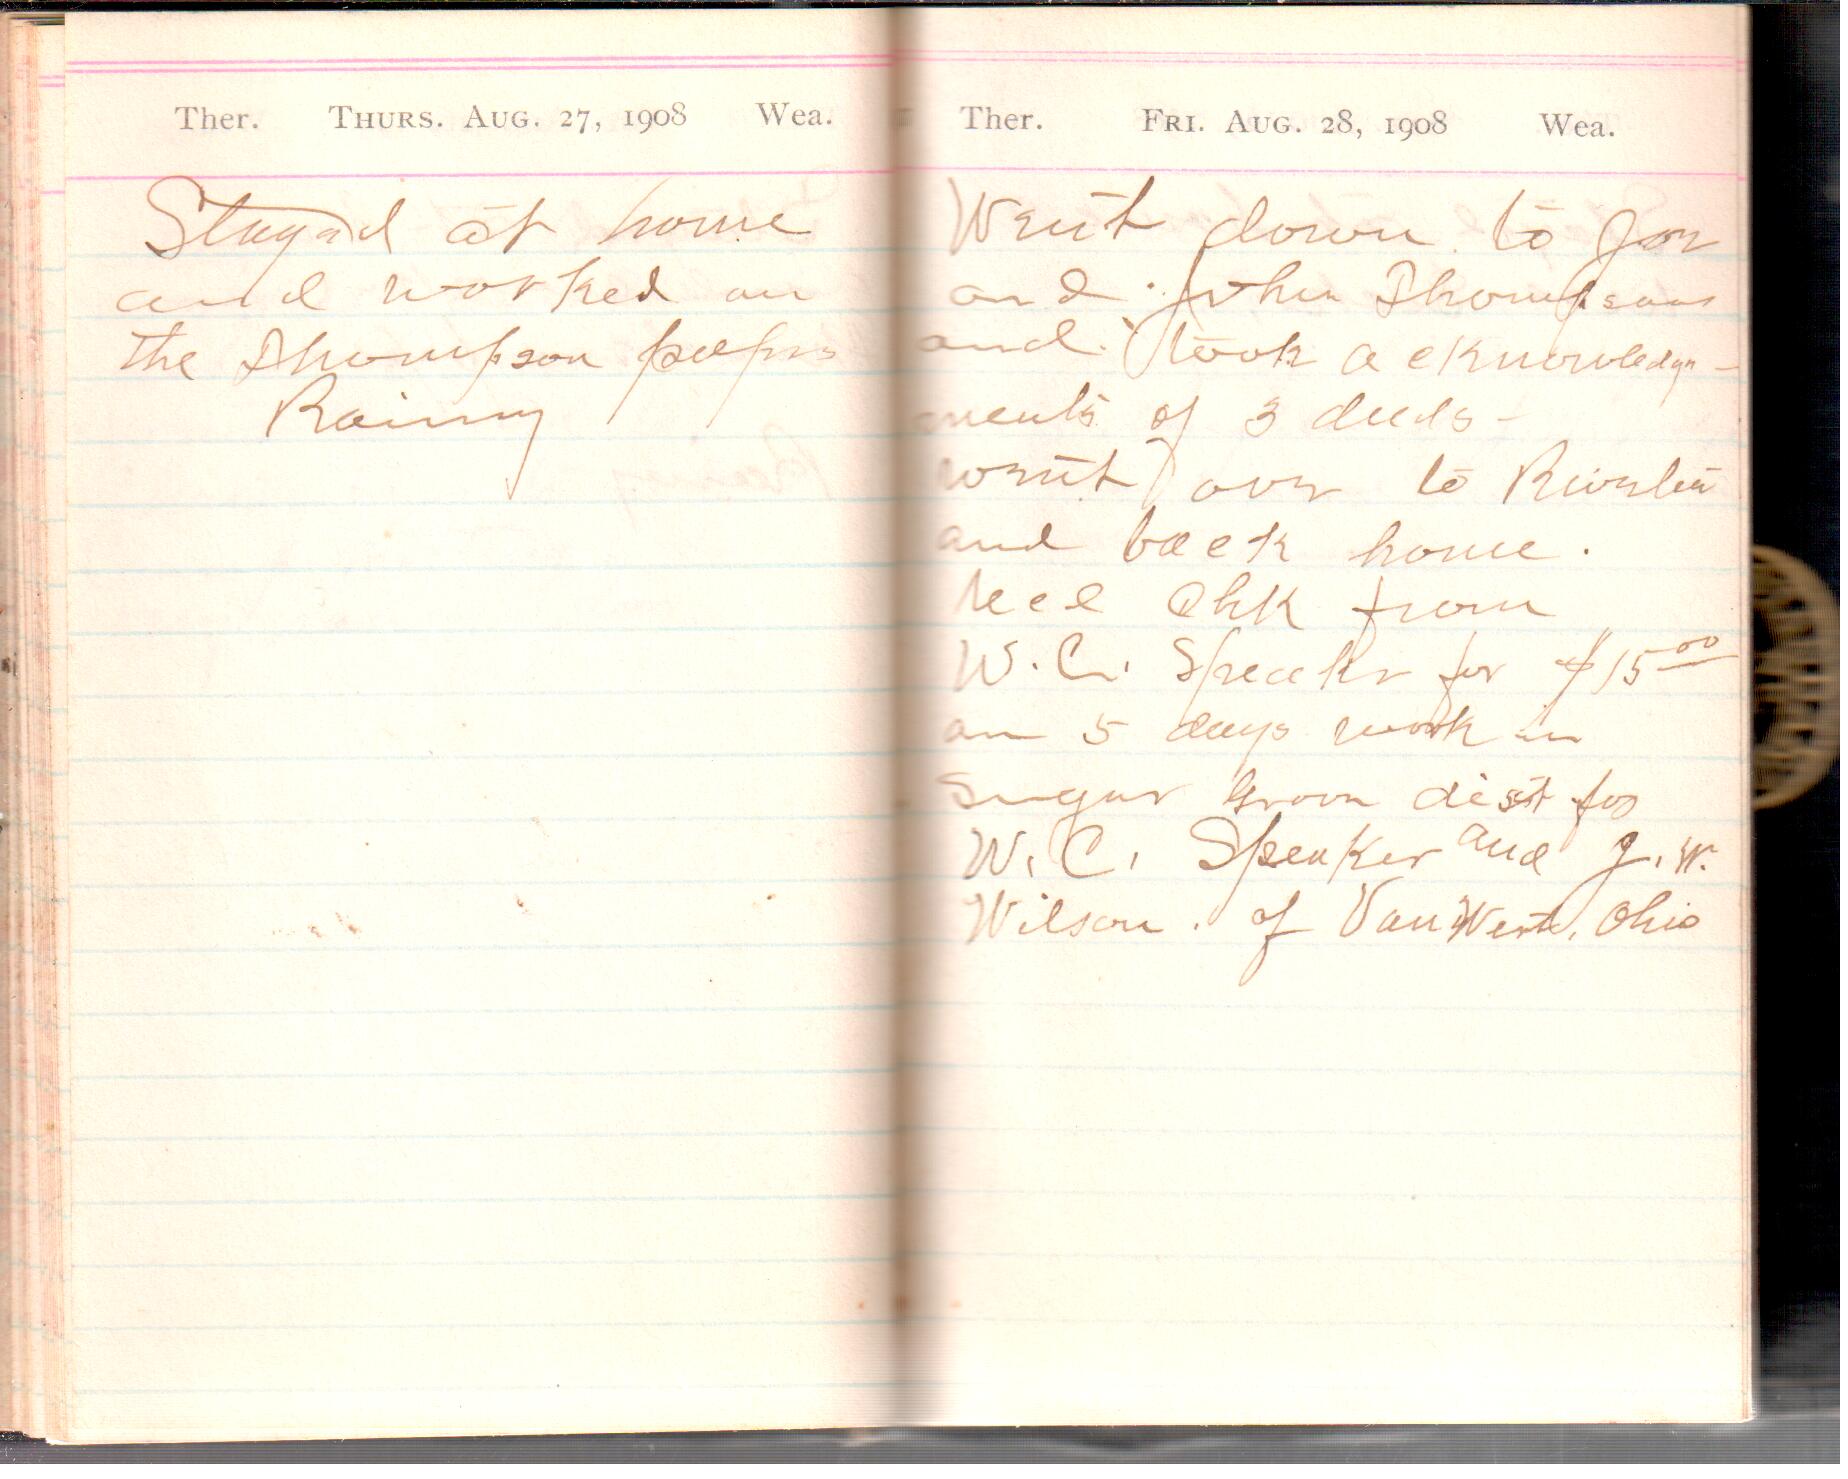 Ther. THURS. AUG. 27, 1908 Wea.
Stayed at home
and worked on
the Thompson papers
Rainy
Ther. FRI. AUG. 28, 1908 Wea.
Went down to
and John Thompsons
and took acknowledg-
ments of 3 deeds -
went over to
and back home.
Recd Chk from
W. C. Speaker for $15 00
on 5 days work in
Sugar Grove dist for
W. C. Speaker and J. W.
Wilson. of Van Wert, Ohio